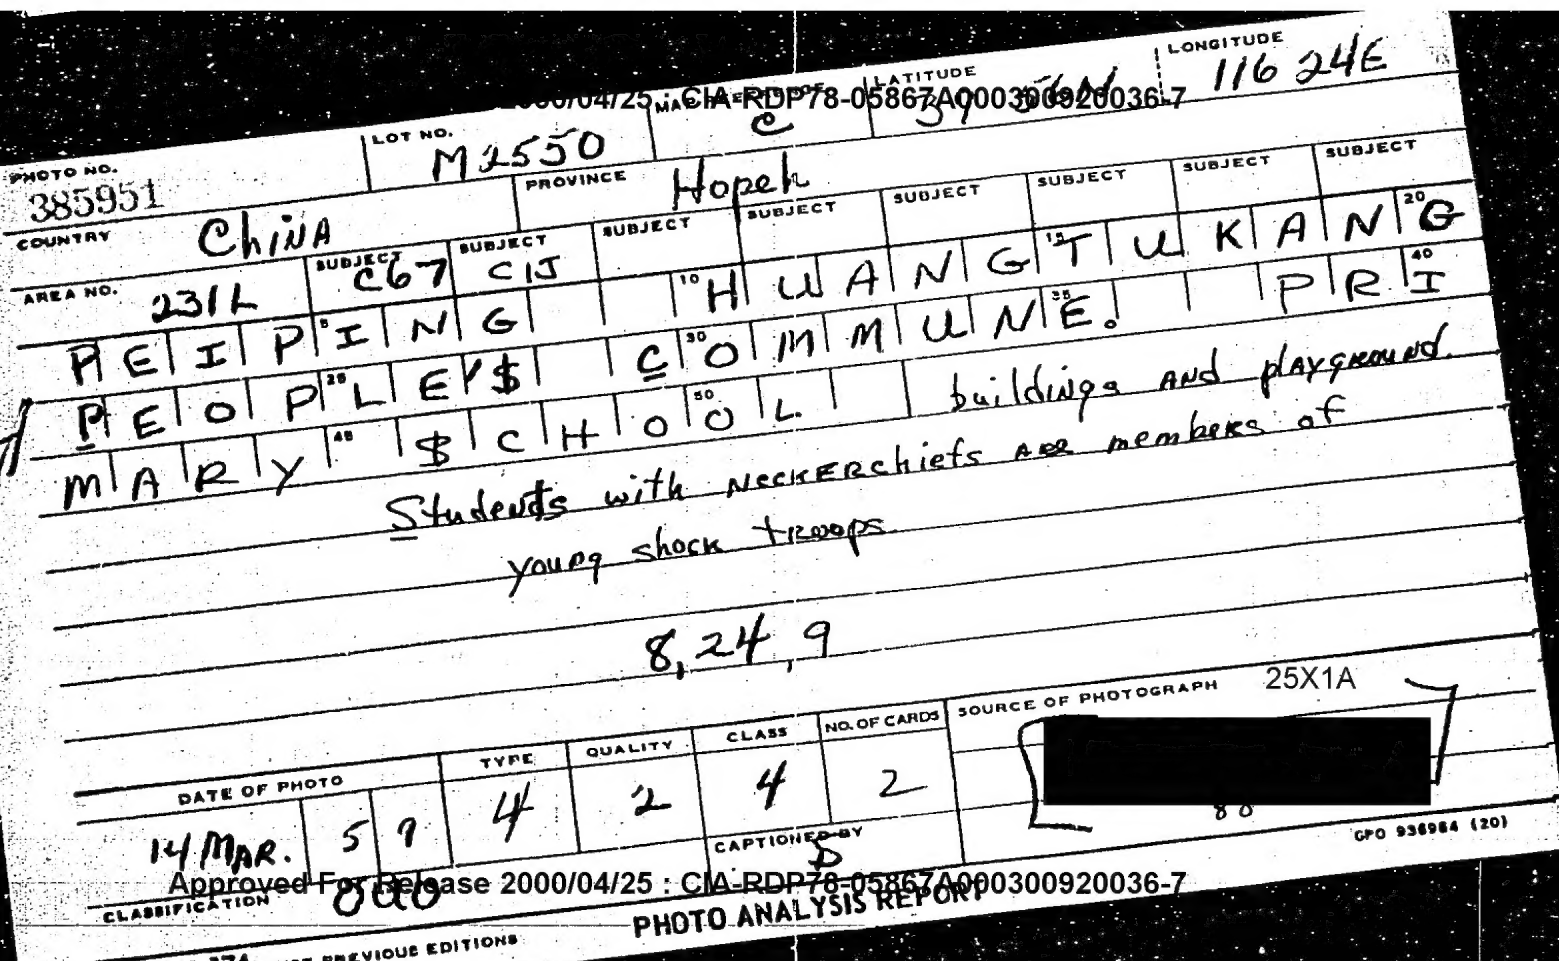 2000/04/25 : CIA-RDP78-05867A000300920036-7
PHOTO NO. 385951
LOT NO. M2550
C
LATITUDE 39 56N
LONGITUDE 116 24E
COUNTRY China
PROVINCE Hopeh
AREA NO. 231L
SUBJECT C67
SUBJECT CIJ
SUBJECT
SUBJECT
SUBJECT
SUBJECT
SUBJECT
SUBJECT
PEIPING HUANGTUKANG
PEOPLE'$ COMMUNE. PRI
MARY $CHOOL buildings and playground.
Students with neckerchiefs are members of
young shock troops.
8,24,9
DATE OF PHOTO 14 MAR. 59
TYPE 4
QUALITY 2
CLASS 4
NO. OF CARDS 2
SOURCE OF PHOTOGRAPH 25X1A
80
CAPTIONED BY D
GPO 936984 (20)
Approved For Release 2000/04/25 : CIA-RDP78-05867A000300920036-7
CLASSIFICATION OUO
PHOTO ANALYSIS REPORT
PREVIOUS EDITIONS